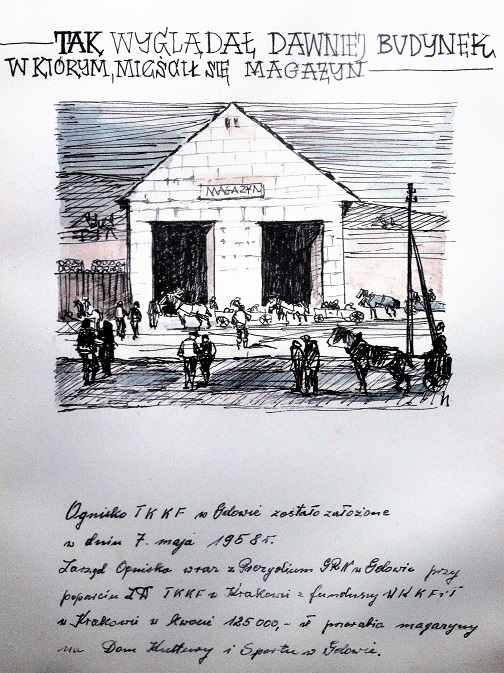 TAK WYGLĄDAŁ DAWNIEJ BUDYNEK
W KTÓRYM, MIEŚCIŁ SIĘ MAGAZYN
MAGAZYN
Ognisko TKKF w Gdowie zostało założone
w dniu 7. maja 1958 r.
Zarząd Ogniska wraz z Prezydium GRN w Gdowie przy
poparciu ZW TKKF w Krakowie z funduszy WKKFiT
w Krakowie w kwocie 125000,- zł przerabia magazyny
na Dom Kultury i Sportu w Gdowie.